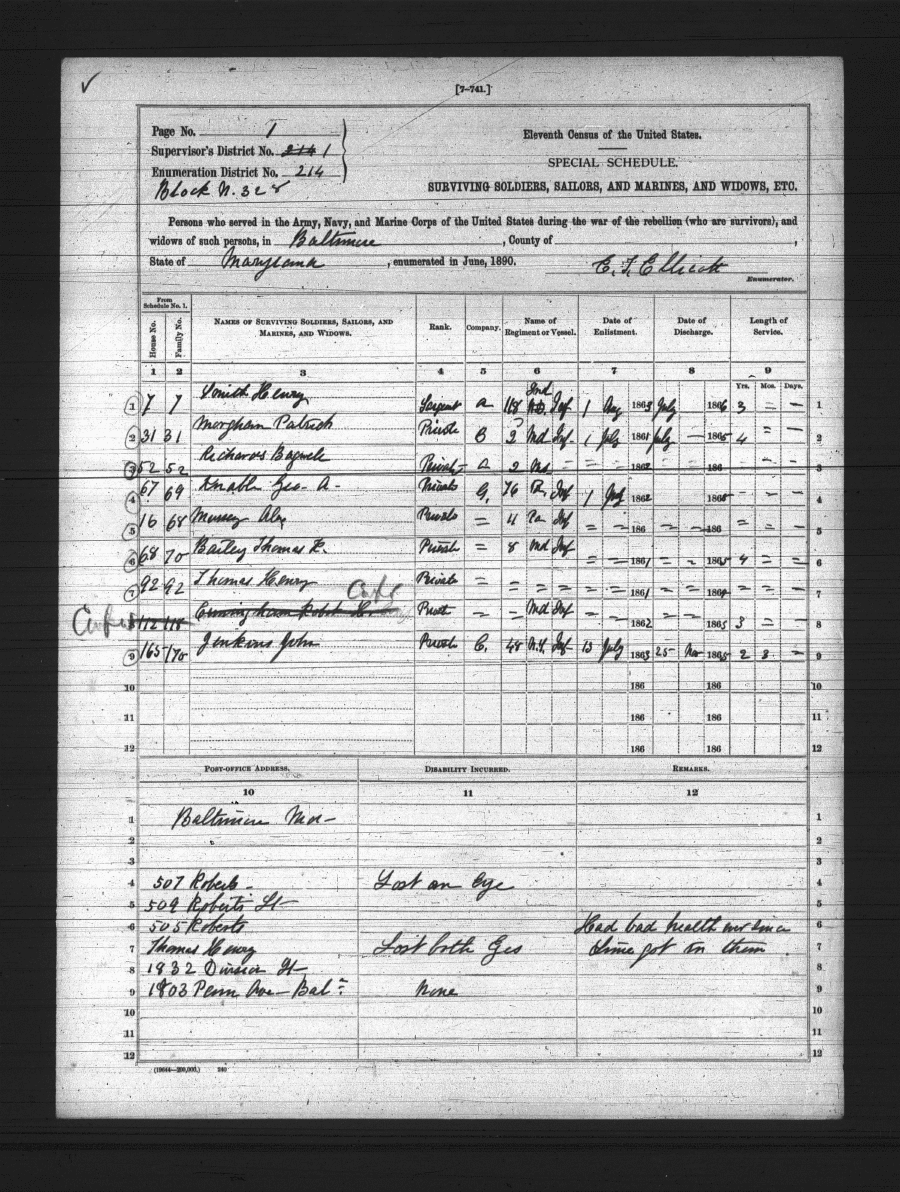 [7-741.]
Page No. 1
Supervisor's District No. 214 1
Enumeration District No. 214
Block N. 328
Eleventh Census of the United States.
SPECIAL SCHEDULE.
SURVIVING SOLDIERS, SAILORS, AND MARINES, AND WIDOWS, ETC.
Persons who served in the Army, Navy, and Marine Corps of the United States during the war of the rebellion (who are survivors), and
widows of such persons, in Baltimore, County of ,
State of Maryland, enumerated in June, 1890. E. T. Ellicott
Enumerator.
From Schedule No. 1.
House No. Family No. NAMES OF SURVIVING SOLDIERS, SAILORS, AND MARINES, AND WIDOWS. Rank. Company. Name of Regiment or Vessel. Date of Enlistment. Date of Discharge. Length of Service.
1 2 3 4 5 6 7 8 9
Yrs. Mos. Days.
1 7 7 Smith Henry Sargent A 118 Inf 1 Aug 1863 July 1866 3 = – 1
2 31 31 Morgham Patrick Private B 2 Md Inf 1 July 1861 July – 1865 4 = – 2
3 52 52 Richards Bagwell Private A 2 Md – – = – 1862 186 3
4 67 69 Knabb Geo. A – Private G 76 Inf 1 1862 1865 – – – 4
5 16 68 Private = 11 Pa Inf = = 186 = = 186 = = – 5
6 68 70 Bailey Thomas R. Private = 8 Md Inf = = 1861 = = 1865 4 = = 6
7 92 92 Thomas Henry Private = = = = = = 1861 – – 186 7
Conf
8 112 118 Cunningham Robt H. Privt = = Md Inf = – 1862 – – 1865 3 = – 8
9 165 170 Jenkins John Private C. 48 N.Y. Inf 13 July 1863 25 Nov 1865 2 3 – 9
10 186 186 10
11 186 186 11
12 186 186 12
POST-OFFICE ADDRESS. DISABILITY INCURRED. REMARKS.
10 11 12
1 Baltimore Md – 1
2 2
3 3
4 507 Roberts – Lost an Eye 4
5 509 Roberts St 5
6 505 Roberts Had bad health ever since 6
7 Thomas Henry Lost both Lime got in them 7
8 1832 Division St 8
9 1803 Penn Ave – Balt None 9
10 10
11 11
12 12
(19644—200,000.) 240